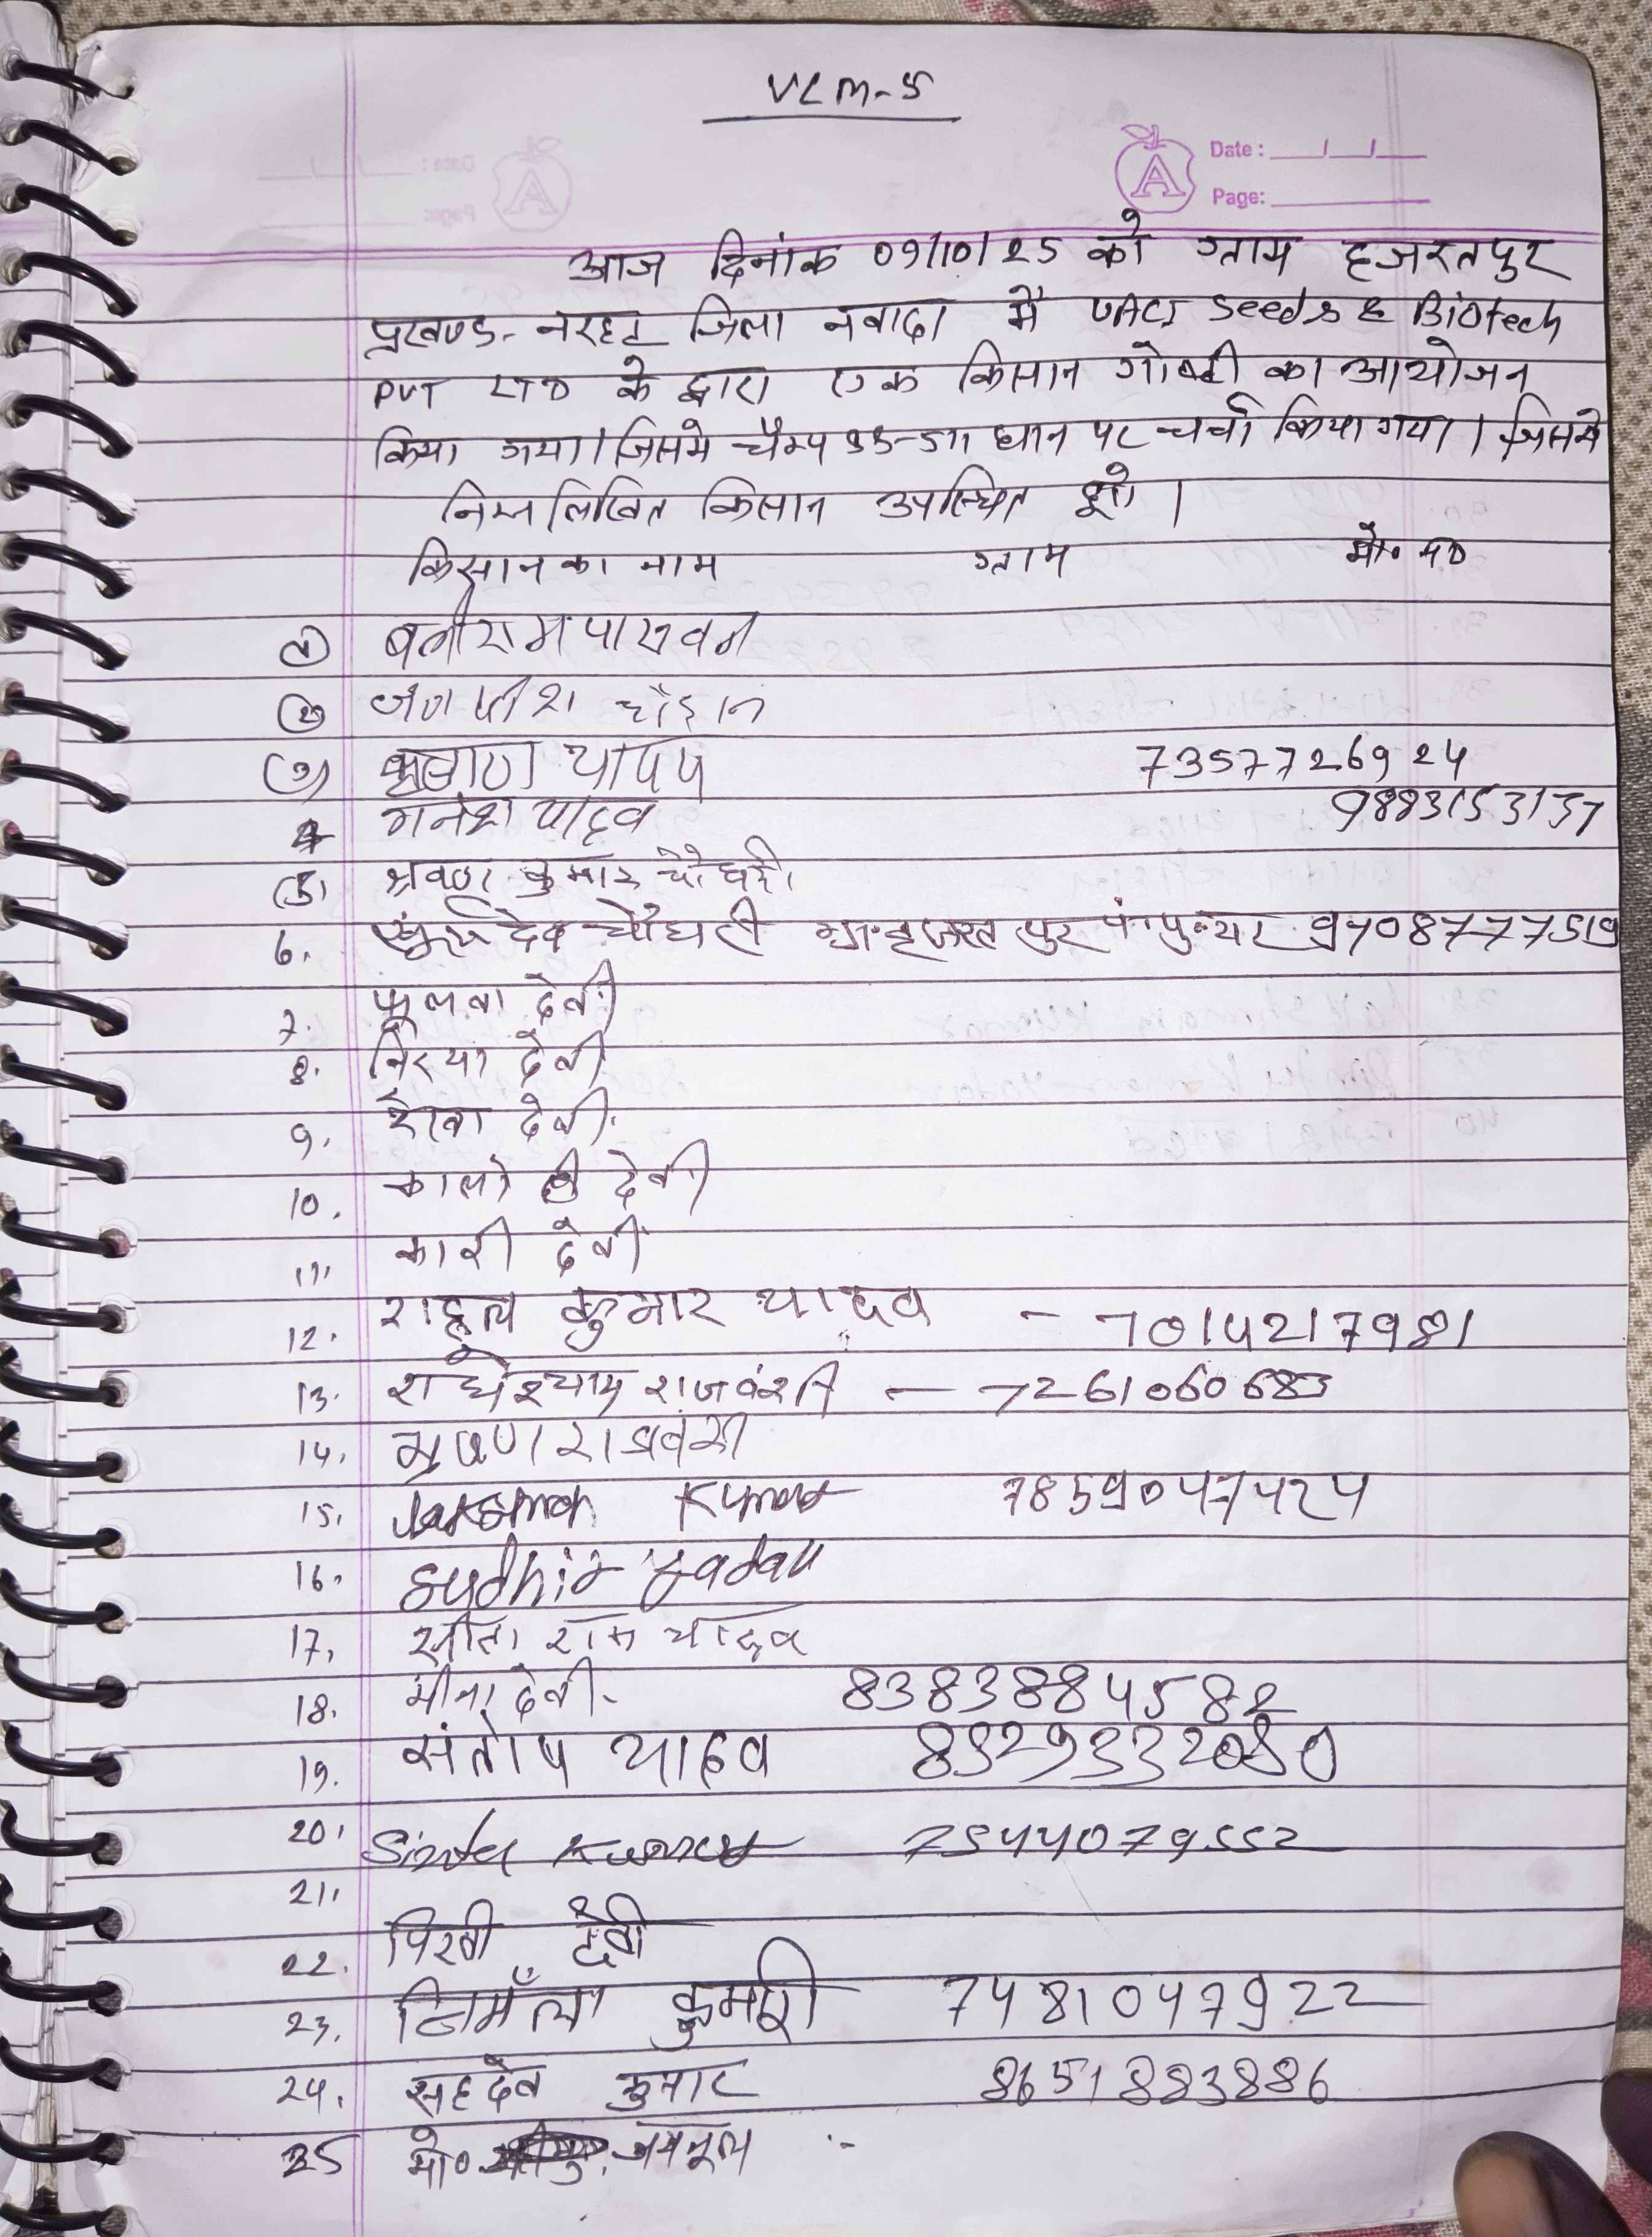 VLM-5
Date : __/__/__
Page:
आज दिनांक 09/10/25 को ग्राम हजरतपुर
प्रखण्ड- नरहट जिला नवादा में Seeds & Biotech
PVT LTD के द्वारा एक किसान गोष्ठी का आयोजन
किया गया। जिसमे चैम्प धान पर चर्चा किया गया। जिसमे
निम्नलिखित किसान उपस्थित हुये।
किसान का नाम ग्राम मो॰ नo
① बलीराम पासवान
② जगदीश चौहान
(3) कृष्णा यादव 7357726924
4 गनेश यादव 9883153137
(5) श्रवण कुमार चौधरी
6. सूर्यदेव चौधरी ग्रा॰ हजरतपुर पं॰ पुन्थर 9708777519
7. फुलवा देवी
8. देवी
9. रेखा देवी
10. कालो देवी
11. कारी देवी
12. राहूल कुमार यादव - 7014217981
13. राधेश्याम राजवंशी - 7261060683
14. भुषण राजवंसी
15. Kumar 7859047424
16. Sudhir Yadav
17. सीता राम यादव
18. मीना देवी. 8383884582
19. संतोष यादव
20. Kumar 7544079552
21.
22. देवी
23. निर्मला कुमारी 7481047922
24. सहदेव कुमार 8651883886
25 मो०